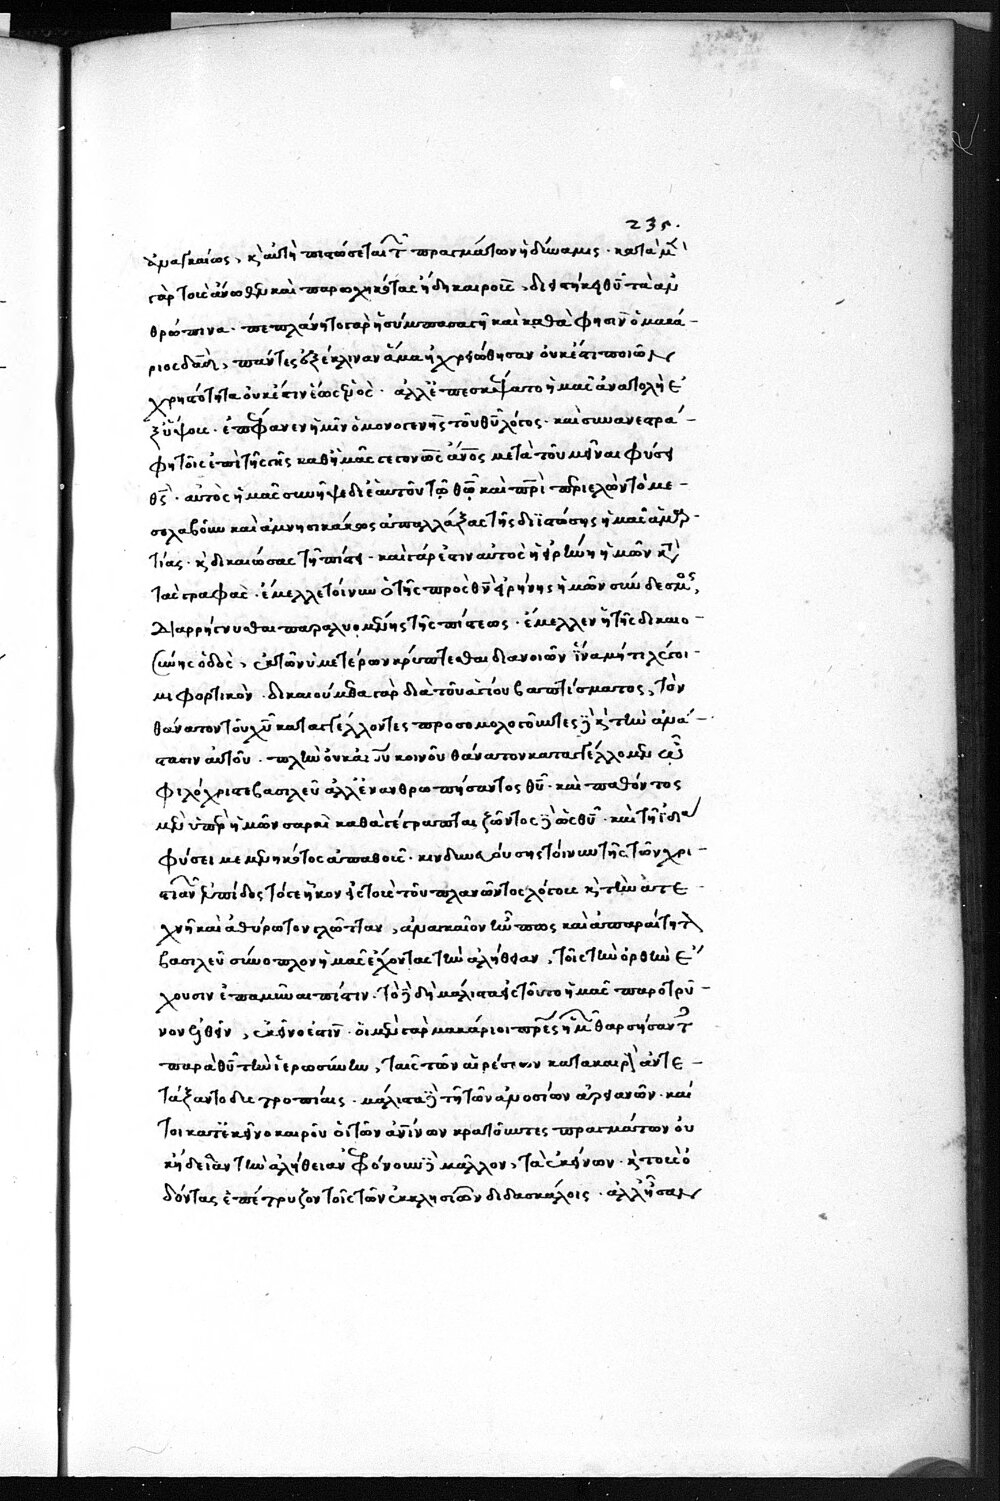 235.
ἀναγκαίως, κ αὐτὴ πιστώσεται τ πραγμάτων ἡ δύναμις. κατὰ μ
γὰρ τοὺς ἄνωθεν καὶ παρῳχηκότας ἤδη καιροὺς, διεφθη τὰ ἀν
θρώπινα. πεπλάνητο γὰρ ἡ σύμπασα γῆ καὶ καθὰ φησὶν ὁ μακά-
ριος δαδ, πάντες ἐξέκλιναν ἅμα ἠχρειώθησαν οὐκ ἔστι ποιῶν
χρηστότητα οὐκ ἔστιν ἕως ἑνός. ἀλλ' ἐπεσκέψατο ἡμᾶς ἀνατολὴ ἐ
ξ ὕψους. ἐπέφανεν ἡμῖν ὁ μονογενὴς τοῦ θυ λόγος. καὶ συνανεστρά-
φη τοῖς ἐπὶ τῆς γῆς καθ' ἡμᾶς γεγονὼς ἄνος μετὰ τοῦ μεῖναι φύσει
θς. αὐτὸς ἡμᾶς συνῆψε δι' ἑαυτοῦ τῷ θω καὶ πρι περιελὼν τὸ με-
σολαβοῦν καὶ ἀμνησικάκως ἀπαλλάξας τῆς διϊστώσης ἡμᾶς ἁμαρ-
τίας. κ δικαιώσας τῇ πίστει. καὶ γάρ ἐστιν αὐτὸς ἡ εἰρήνη ἡμῶν κατὰ
τὰς γραφάς. ἔμελλε τοίνυν ὁ τῆς πρὸς θν εἰρήνης ἡμῶν σύνδεσμος,
διαρρήγνυσθαι παραλυομένης τῆς πίστεως. ἔμελλεν ἡ τῆς δικαιο-
σύνης ὁδὸς, ἐκ τῶν ὑμετέρων κρύπτεσθαι διανοιῶν ἵνα μή τι λέγοι-
μι φορτικὸν. δικαιούμεθα γὰρ διὰ τοῦ ἁγίου βαπτίσματος, τὸν
θάνατον τοῦ χυ καταγγέλλοντες προσομολογοῦντες δὲ κ τὴν ἀνά-
στασιν αὐτοῦ. πλὴν οὐκ ἀν̅ου κοινοῦ θάνατον καταγγέλλομεν ὦ
φιλόχριστε βασιλεῦ ἀλλ' ἐνανθρωπήσαντος θυ. καὶ παθόντος
μὲν ὑπὲρ ἡμῶν σαρκὶ καθὰ γέγραπται ζῶντος δὲ ὡς θυ. καὶ τῇ ἰδίᾳ
φύσει μεμενηκότος ἀπαθοῦς. κινδυνευούσης τοίνυν τῆς τῶν χρι-
στιανῶν ἐλπίδος τότε ἧκον εἰς τοὺς τοῦ πλανῶντος λόγους κ τὴν ἀτε-
χνῆ καὶ ἀθύρωτον γλῶτταν, ἀναγκαῖον ἦν πως καὶ ἀπαραίτητον
βασιλεῦ σύνοπλον ἡμᾶς ἔχοντας τὴν ἀλήθειαν, τοῖς τὴν ὀρθὴν ἔ
χουσιν ἐπαμῦναι πίστιν. τὸ δὲ δὴ μάλιστα εἰς τοῦτο ἡμᾶς παροτρῦ-
νον ἐλθεῖν, ἐκεῖνο ἐστὶν. οἱ μὲν γὰρ μακάριοι πρες ἡμῶν θαρσήσαντες
παρὰ θυ τὴν ἱερωσύνην, ταῖς τῶν αἱρέσεων κατὰ καιρὸν ἀντε-
τάξαντο διεστροφίαις. μάλιστα δὲ τῇ τῶν ἀνοσίων ἀρειανῶν. καί
τοι κατ' ἐκεῖνο καιροῦ οἱ τῶν ἀνίνων κρατοῦντες πραγμάτων οὐ
κ ᾔδεισαν τὴν ἀλήθειαν ἐφρόνουν δὲ μᾶλλον, τὰ ἐκείνων. κ τοὺς ὀ
δόντας ἐπέτρυζον τοῖς τῶν ἐκκλησιῶν διδασκάλοις. ἀλλ' ἦσαν